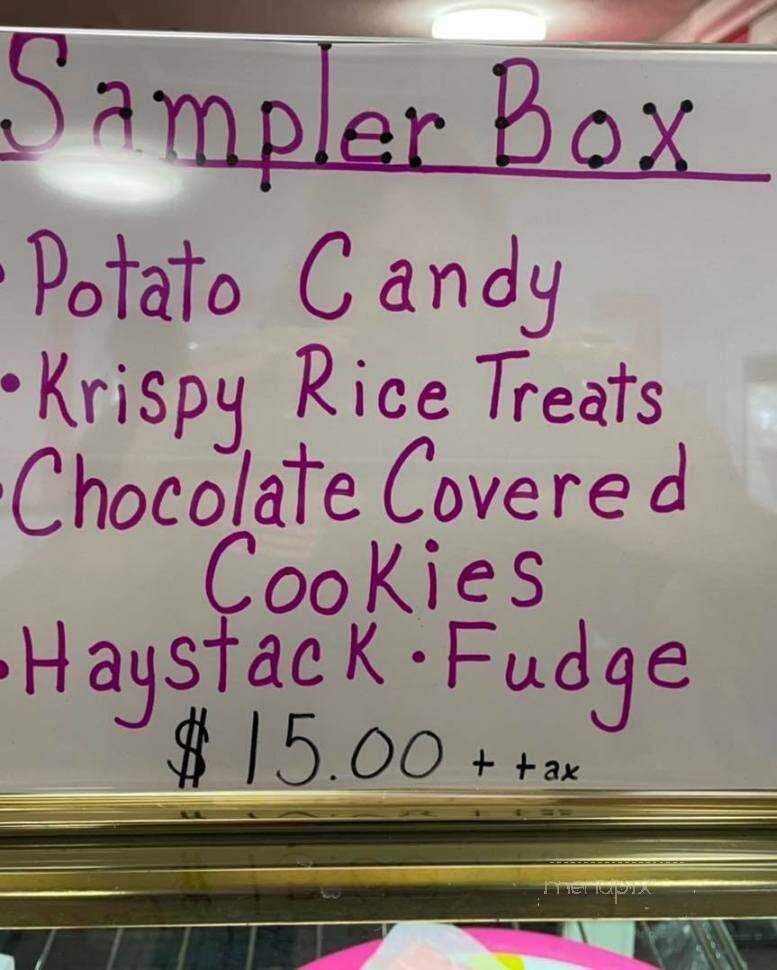 Sampler Box
• Potato Candy
• Krispy Rice Treats
• Chocolate Covered
Cookies
• Haystack • Fudge
$15.00 + tax
menupix